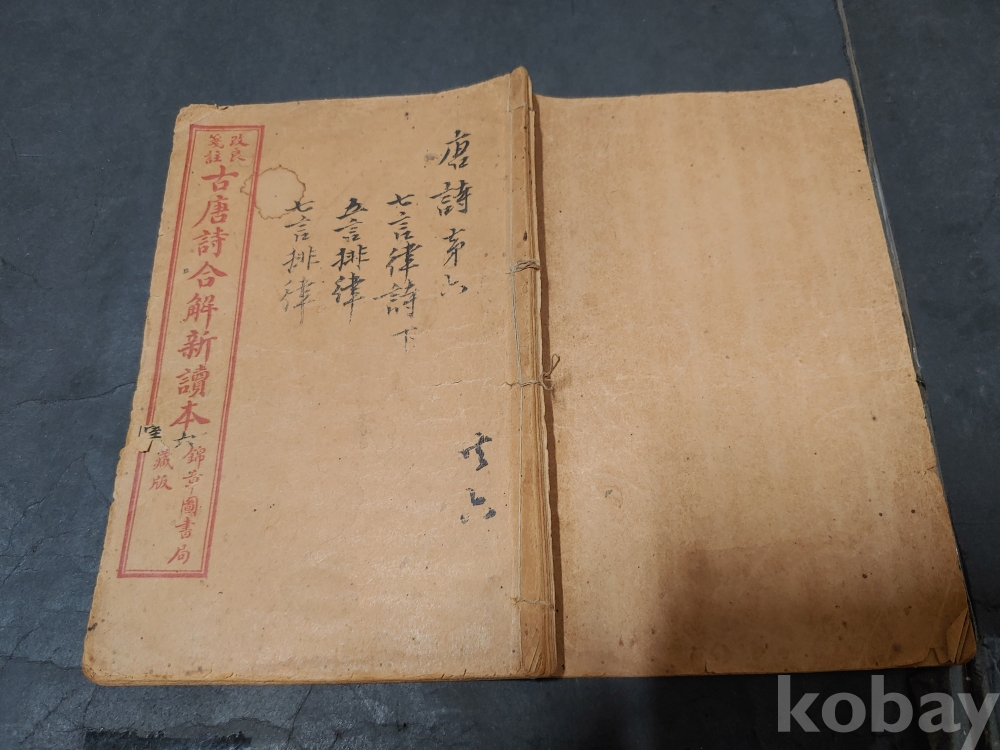 唐詩第六
七言律詩下
五言排律
七言排律
六
改良
箋註
古唐詩合解新讀本
六
錦章圖書局
藏版
kobay